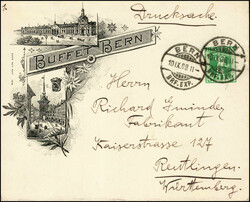 Drucksache.
BUFFET BERN
BERN
10.IX.98.11-
BRF.EXP.
BERN
Herrn
Richard Gminder
Fabrikant
Kaiserstrasse 127
Reutlingen
Württemberg.